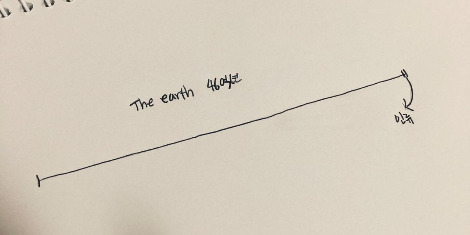 The earth 46억년
인류